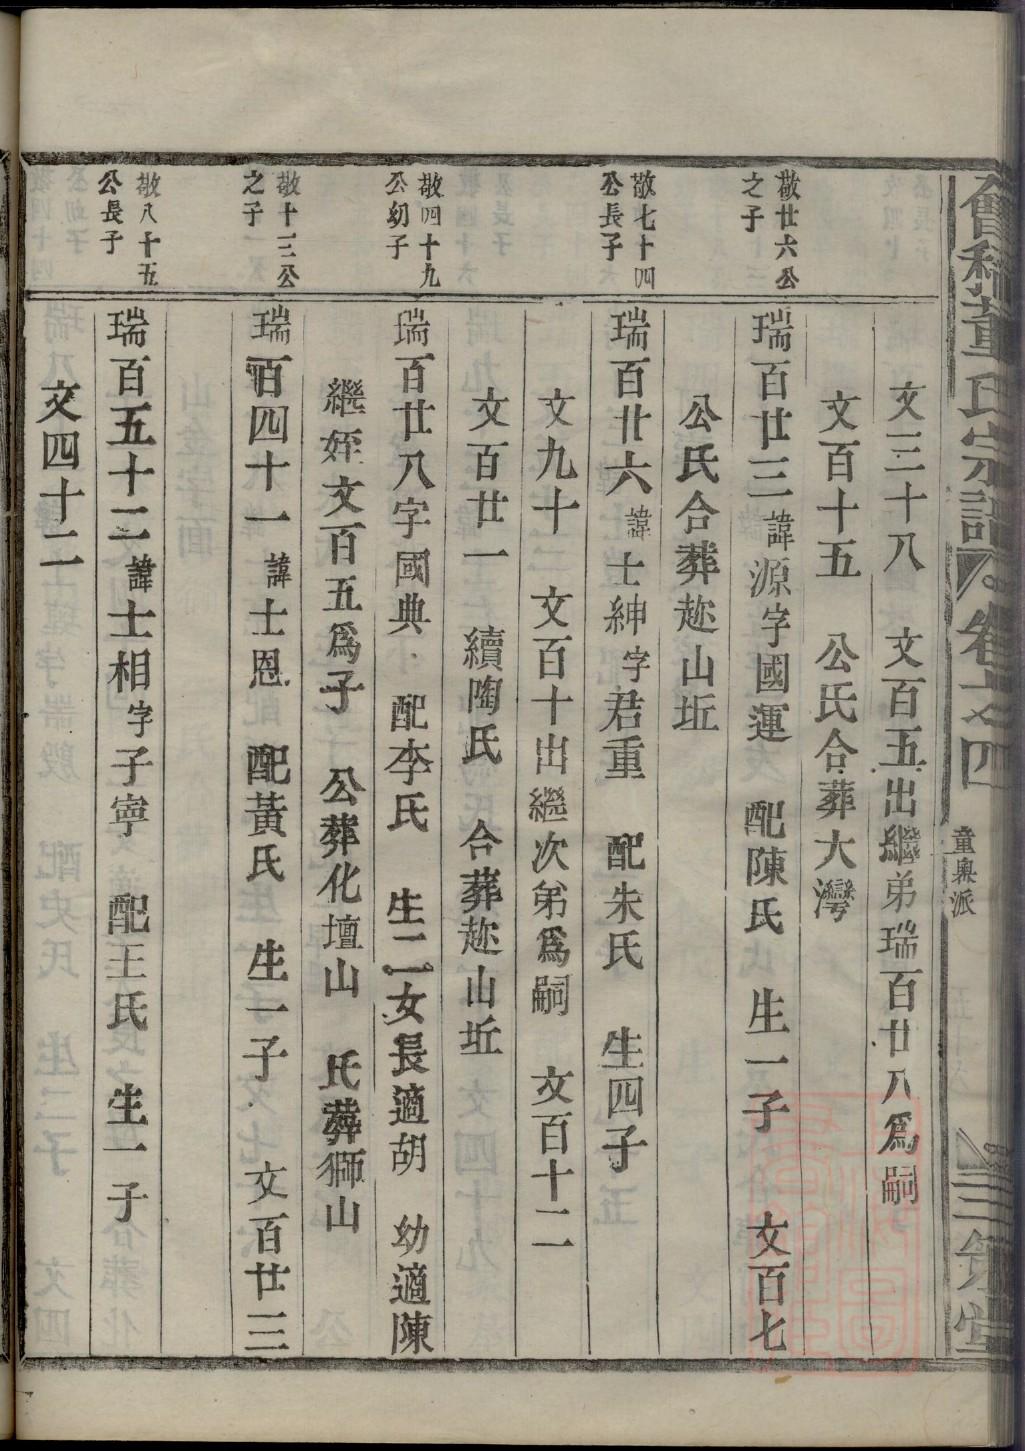 會稽董氏宗譜
童奧派
三策堂
文三十八　文百五出繼弟瑞百廿八爲嗣
文百十五　公氏合葬大灣
敬廿六公之子
瑞百廿三諱源字國運　配陳氏　生一子　文百七
公氏合葬趂山坵
敬七十四公長子
瑞百廿六諱士紳字君重　配朱氏　生四子
文九十　文百十出繼次弟爲嗣　文百十二
文百廿一　續陶氏　合葬趂山坵
敬四十九公幼子
瑞百廿八字國典　配李氏　生二女長適胡　幼適陳
繼姪文百五爲子　公葬化壇山　氏葬獅山
敬十三公之子
瑞百四十一諱士恩　配黃氏　生一子　文百廿三
敬八十五公長子
瑞百五十二諱士相字子寧　配王氏　生一子
文四十二